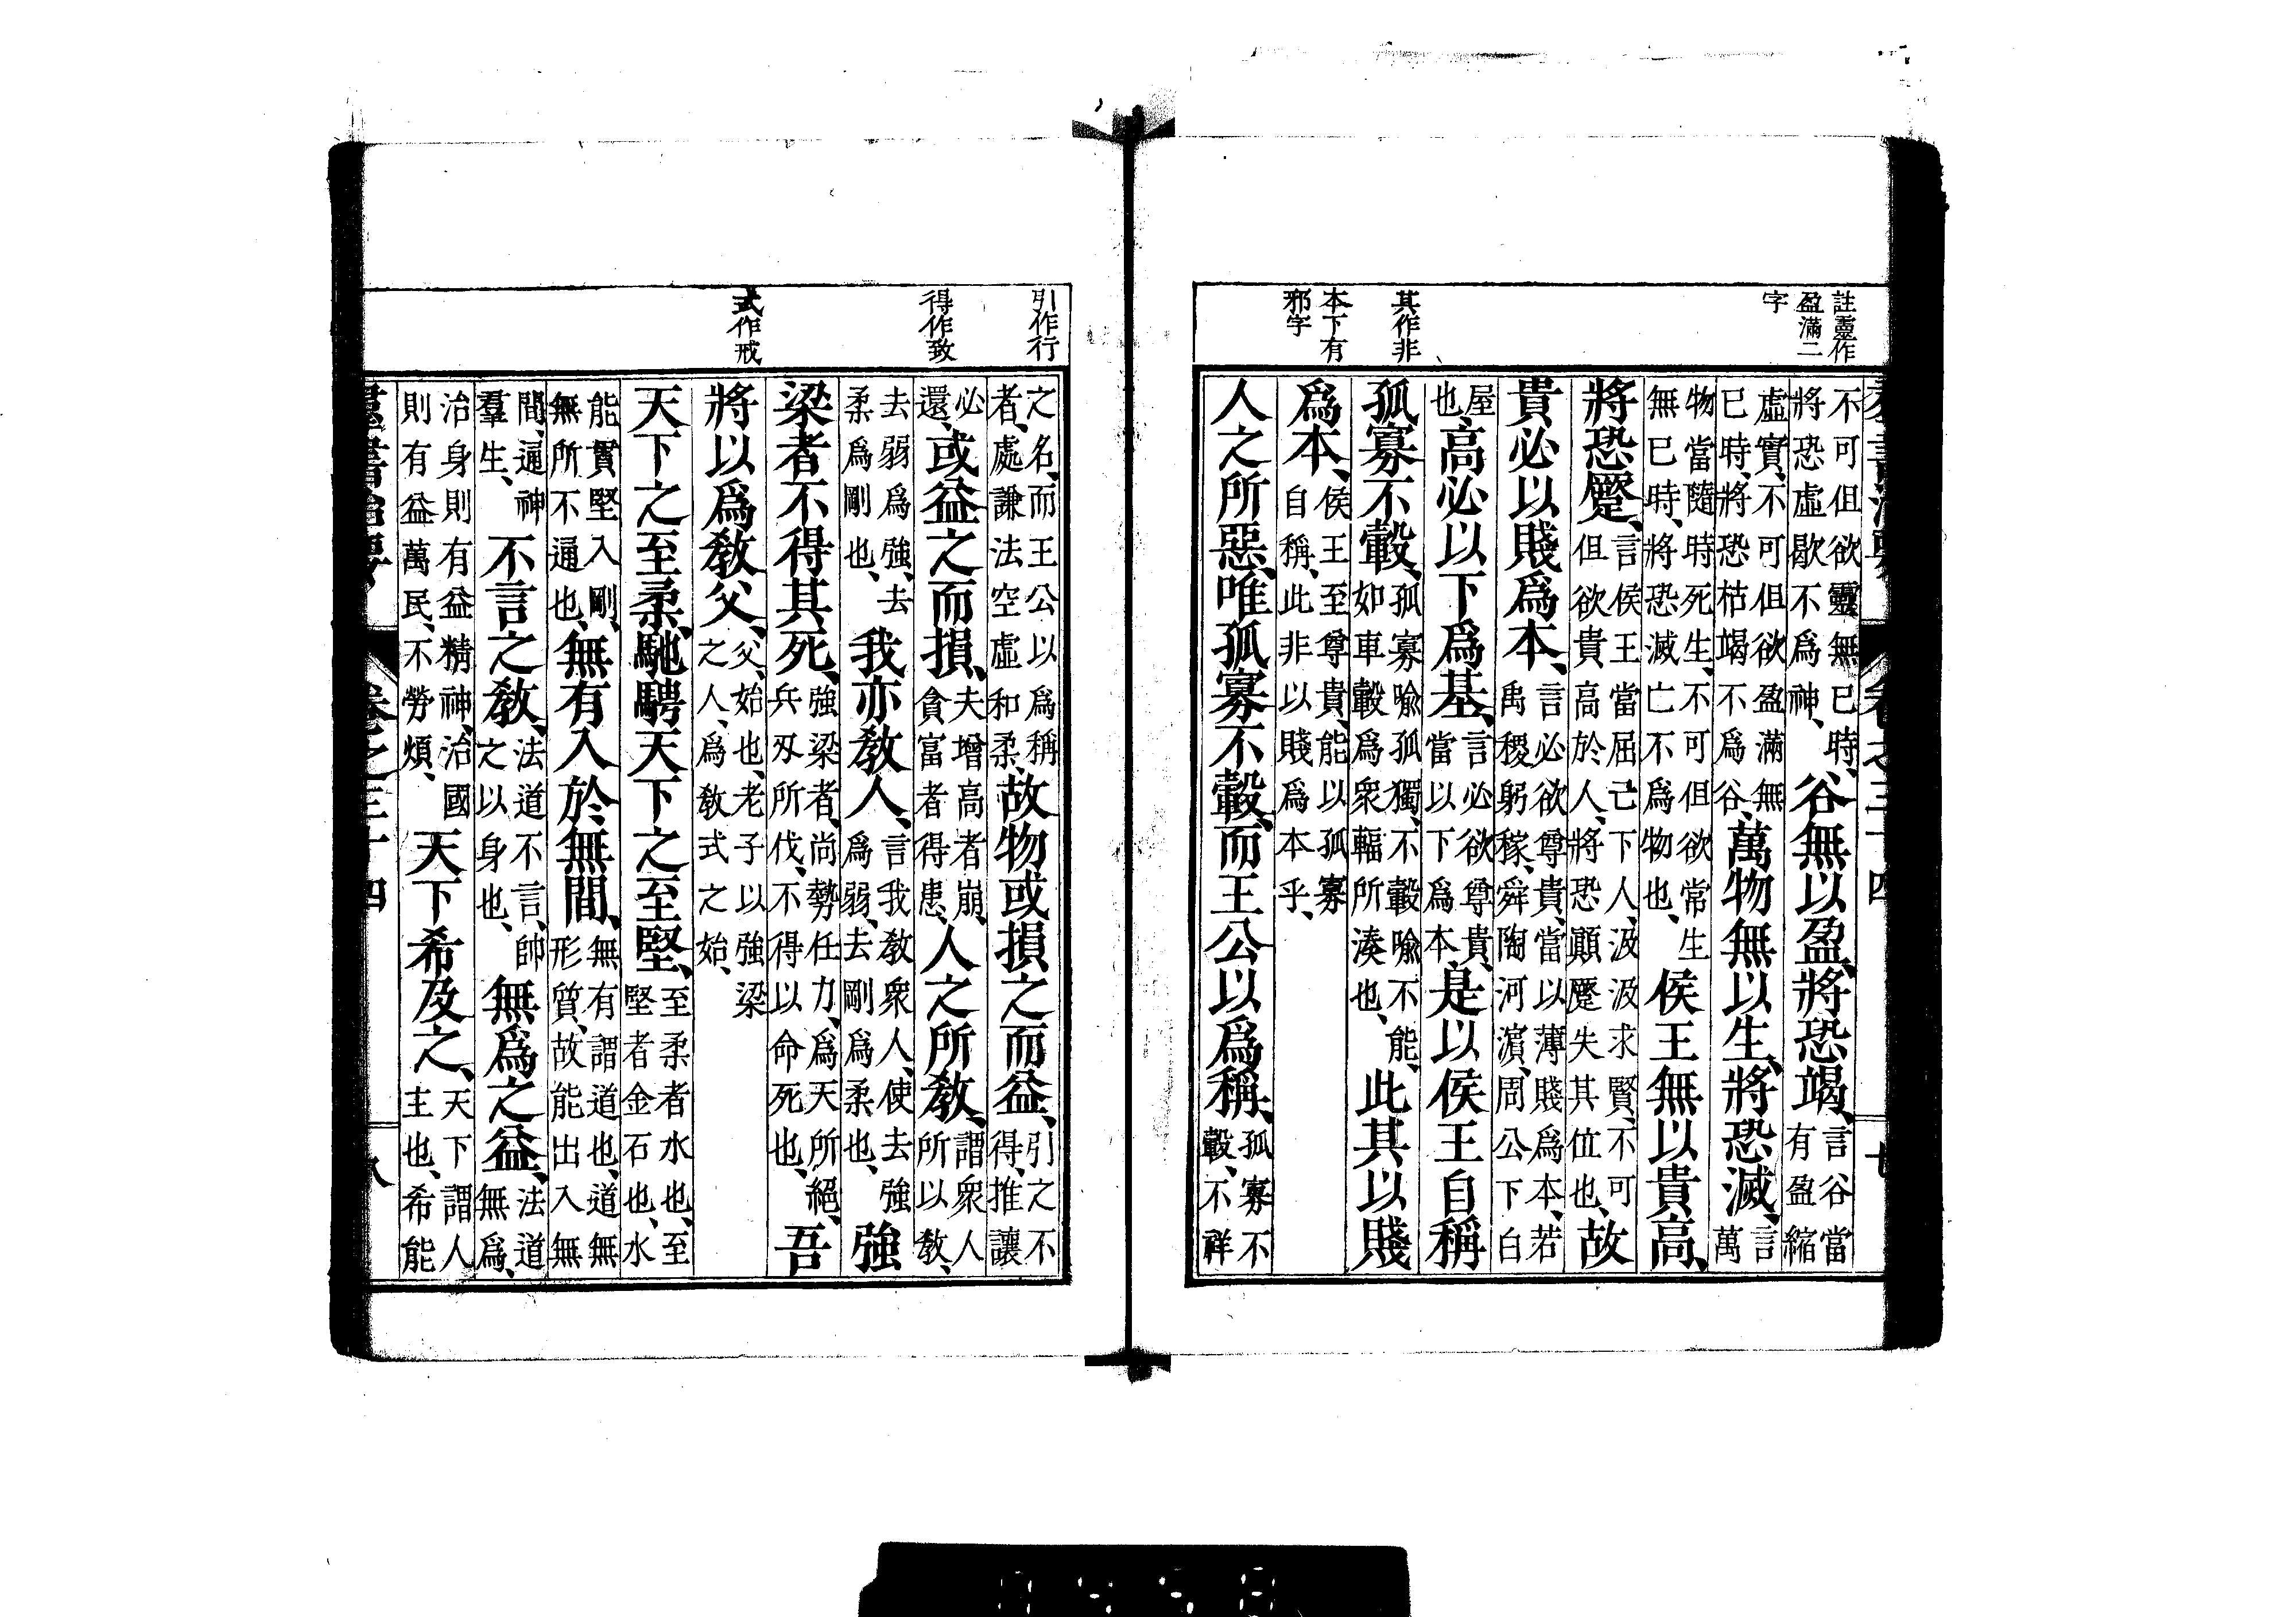 註靈作
盈滿二
字
其作非
本下有
邪字
不可但欲靈無已時、將恐虛歇不爲神、谷無以盈、將恐竭、言谷當有盈縮
虛實、不可但欲盈滿無已時、將恐枯竭不爲谷、萬物無以生、將恐滅、言萬
物當隨時死生、不可但欲常生無已時、將恐滅亡不爲物也、侯王無以貴高、
將恐蹷、言侯王當屈己下人、汲汲求賢、不可但欲貴高於人、將恐顚蹷失其位也、故
貴必以賤爲本、言必欲尊貴、當以薄賤爲本、若禹稷躬稼、舜陶河濵、周公下白
屋也、高必以下爲基、言必欲尊貴、當以下爲本、是以侯王自稱
孤寡不轂、孤寡喩孤獨、不轂喩不能、如車轂爲衆輻所湊也、此其以賤
爲本、侯王至尊貴、能以孤寡自稱、此非以賤爲本乎、
人之所惡、唯孤寡不轂、而王公以爲稱、孤寡不轂、不祥
引作行
得作致
式作戒
之名、而王公以爲稱者、處謙法空虛和柔、故物或損之而益、引之不得、推讓
必還、或益之而損、夫增高者崩、貪富者得患、人之所敎、謂衆人所以敎、
去弱爲強、去柔爲剛也、我亦敎人、言我敎衆人、使去強爲弱、去剛爲柔也、強
梁者不得其死、強梁者、尚勢任力、爲天所絕、兵刃所伐、不得以命死也、吾
將以爲敎父、父、始也、老子以強梁之人、爲敎式之始、
天下之至柔、馳騁天下之至堅、至柔者水也、至堅者金石也、水
能貫堅入剛、無所不通也、無有入於無間、無有謂道也、道無形質、故能出入無
間、通神羣生、不言之敎、法道不言、帥之以身也、無爲之益、法道無爲、
治身則有益精神、治國則有益萬民、不勞煩、天下希及之、天下謂人主也、希能
羣書治要 卷之三十四 八